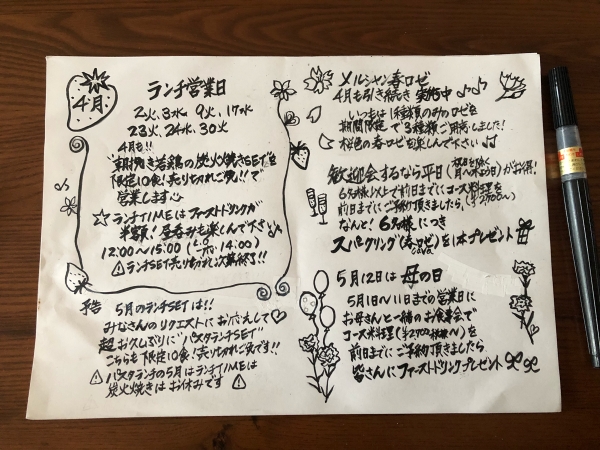 4月
ランチ営業日
2火、3水、9火、17水
23火、24水、30火
4月も!!
"朝挽き若鶏の炭火焼きSET"を
限定10食!売り切れご免!!で
営業します
☆ランチTIMEはファーストドリンクが
半額!昼呑みも楽しんで下さい♪
12:00〜15:00(L.O 14:00)
⚠ランチSET売り切れ次第終了!!
予告 5月のランチSETは!!
みなさんのリクエストにお応えして♡
超お久しぶりに"パスタランチSET"
こちらも限定10食!売り切れご免です!!
⚠パスタランチの5月はランチTIMEは
炭火焼きはお休みです⚠
メルシャン春ロゼ
4月も引き続き実施中♪♪
いつもは1種類のみのロゼを
期間限定で3種類ご用意しました!
桜色の春ロゼを楽しんで下さい♪
歓迎会するなら平日(祝日を除く月〜木の4日)がお得!
6名様以上で前日までにコース料理を
前日までにご予約頂きましたら(¥2700〜)
なんと!6名様につき
スパークリング(春ロゼ or cava)を1本プレゼント
5月12日は母の日
5月1日〜11日までの営業日に
お母さんと一緒のお食事会で
コース料理(¥2700税抜〜)を
前日までにご予約頂きましたら
皆さんにファーストドリンクプレゼント